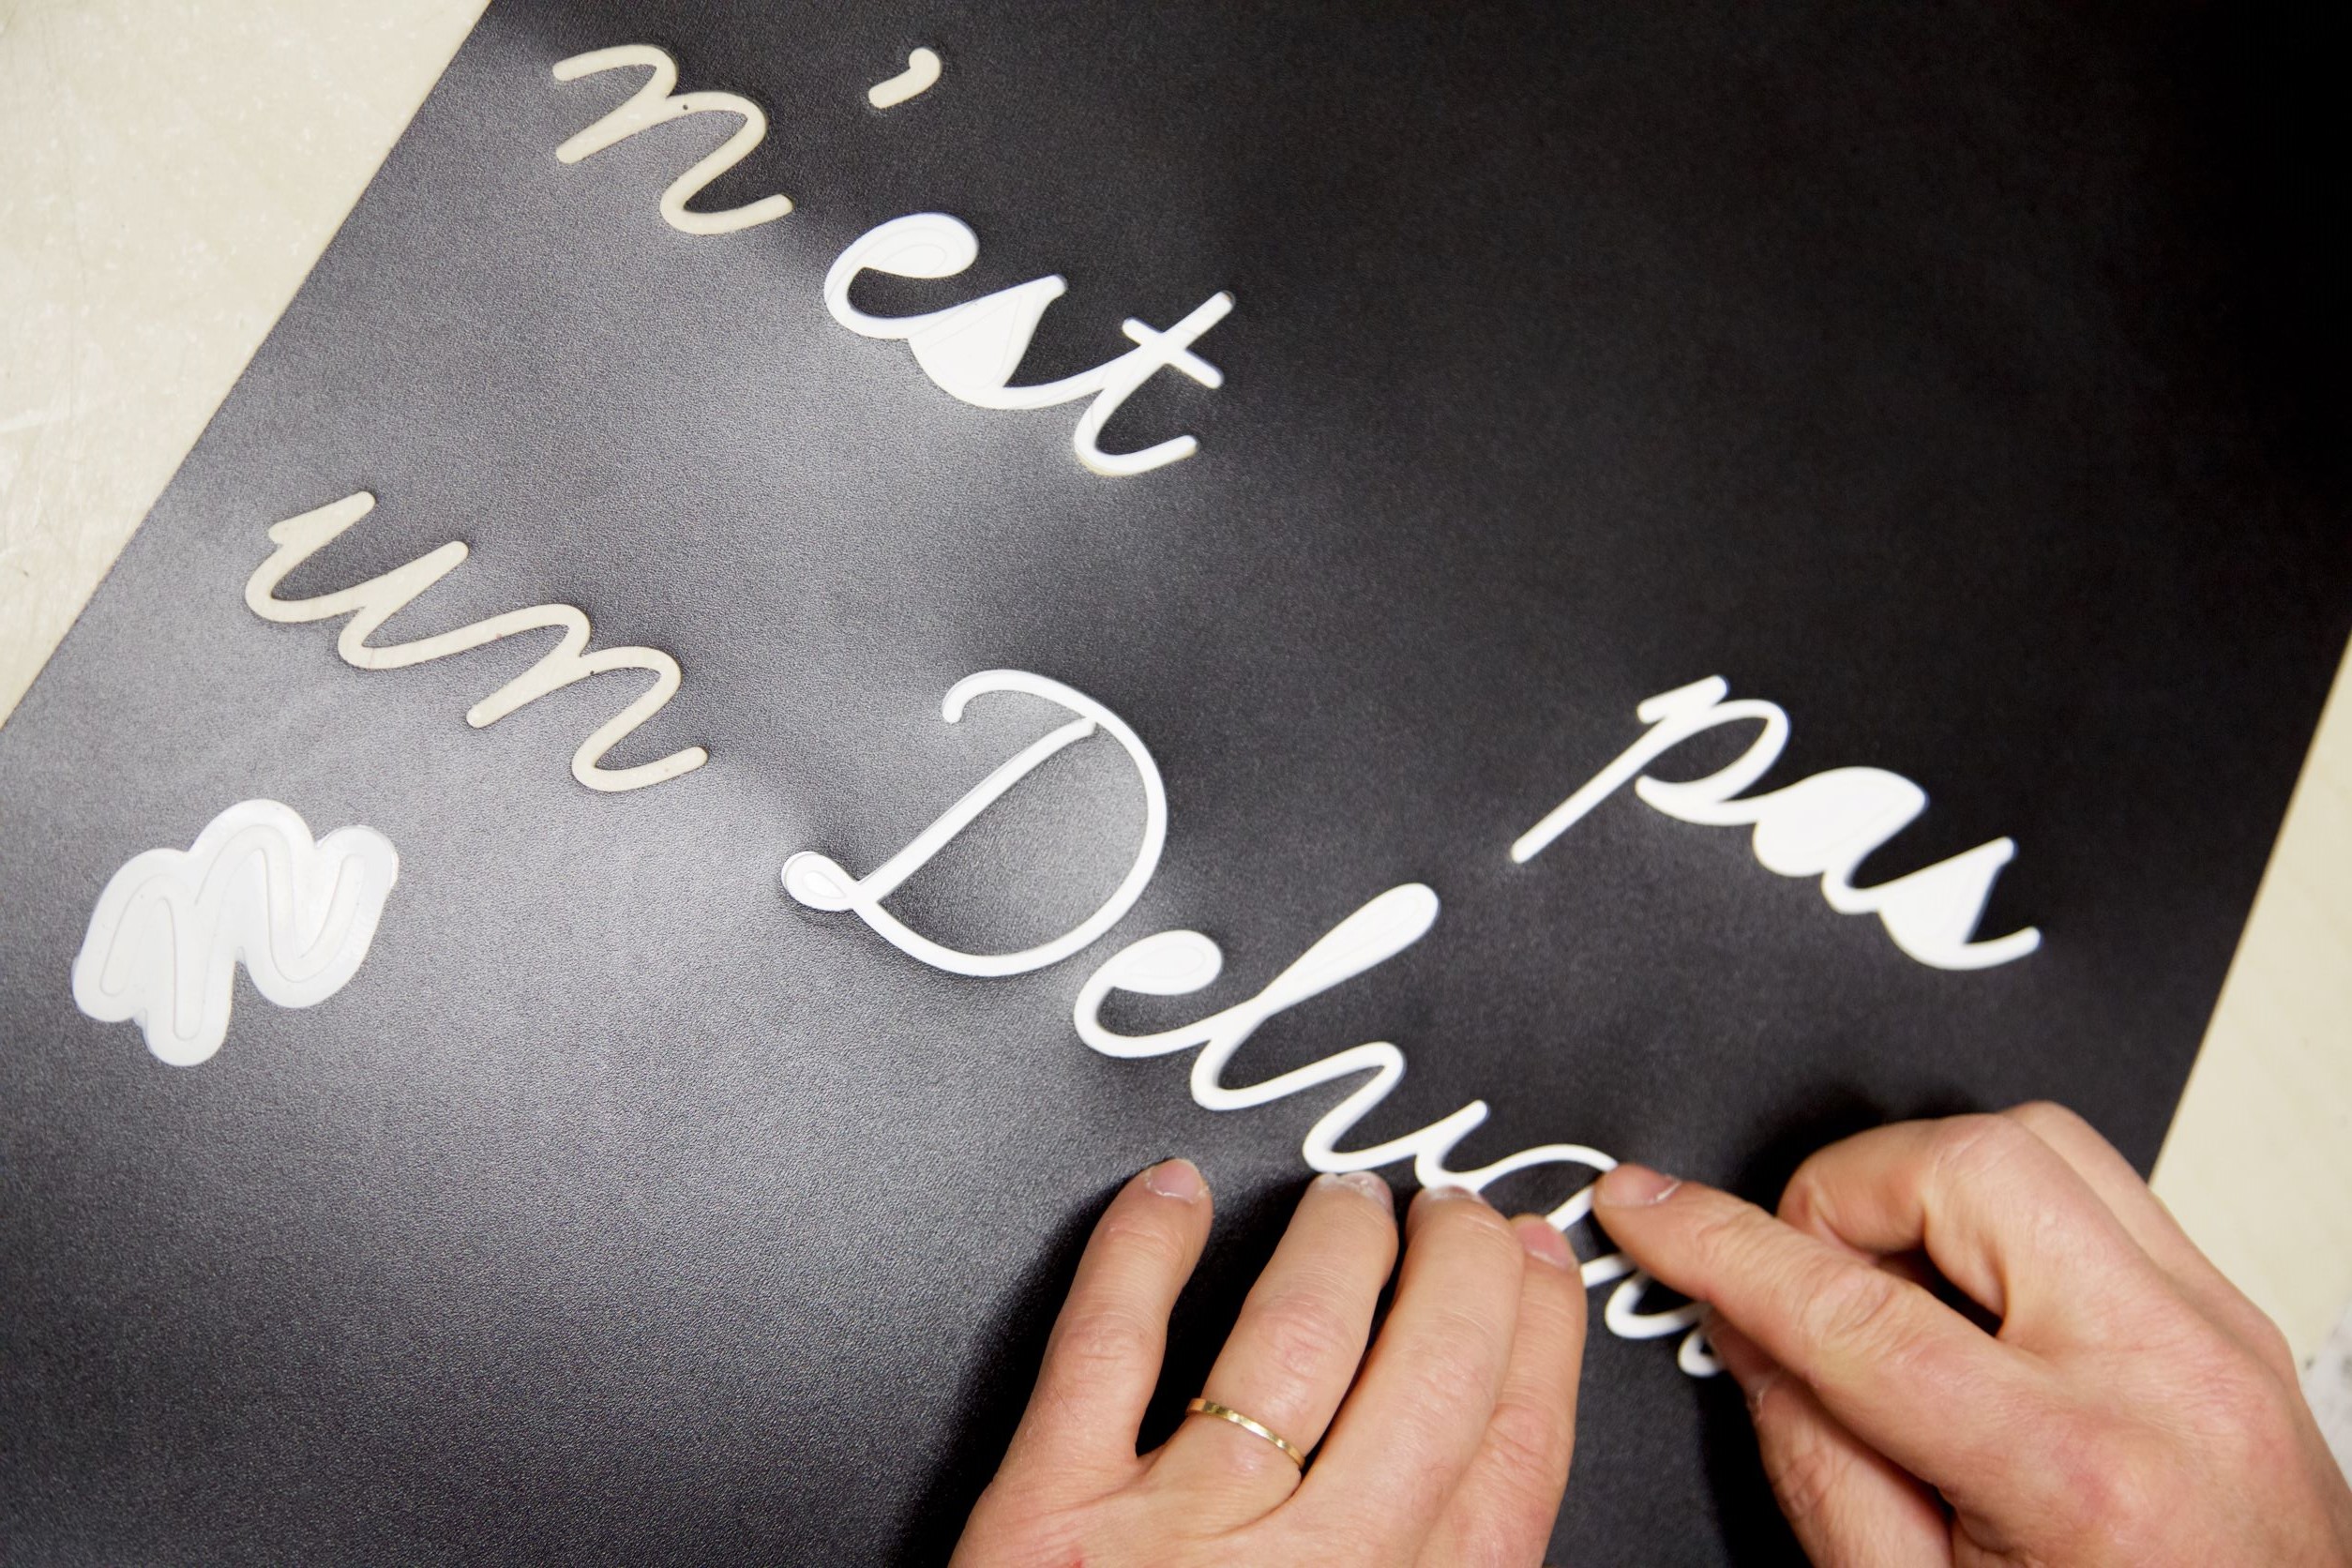 n'est pas
un Delvaux
n